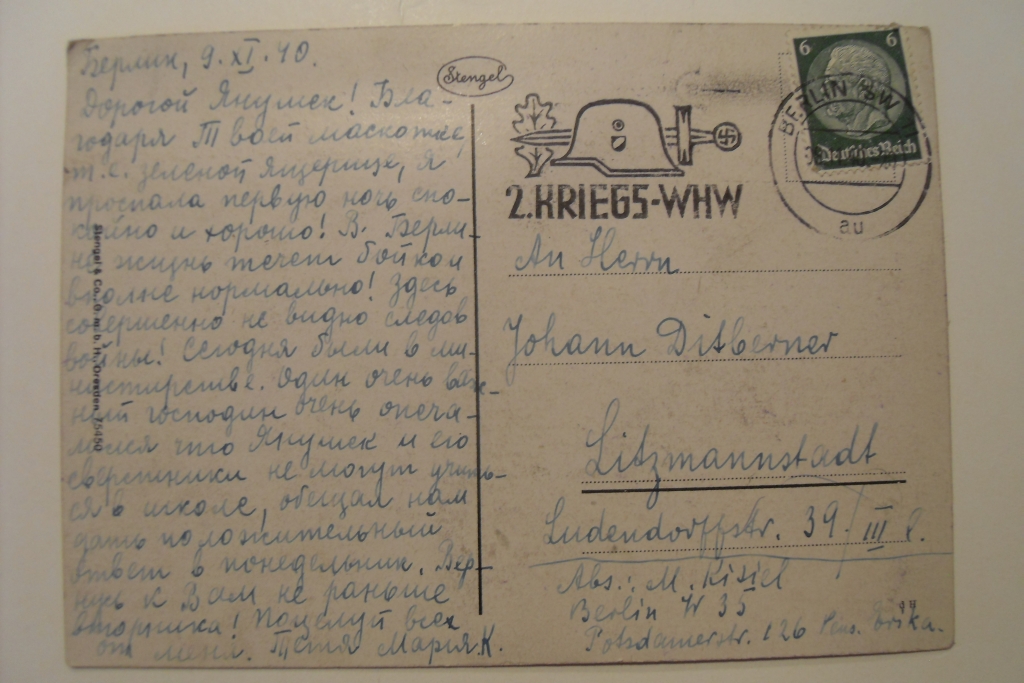 Берлин, 9.XI.40.
Дорогой Янушек! Бла-
годаря Твоей маскотке,
т.е. зеленой ящерице, я
проспала первую ночь спо-
койно и хорошо! В Берли-
не жизнь течет бойко и
вполне нормально! Здесь
совершенно не видно следов
войны! Сегодня были в ми-
нистерстве. Один очень важ-
ный господин очень опеча-
лился что Янушек и его
сверстники не могут учить-
ся в школе, обещал нам
дать положительный
ответ в понедельник. Вер-
нусь к Вам не раньше
вторника! Поцелуй всех
от меня. Тетя Мария.К.
Stengel & Co., G.m.b.H., Dresden 75450
Stengel
2.KRIEGS-WHW
6 6
Deutsches Reich
BERLIN SW
au
An Herrn
Johann Ditberner
Litzmannstadt
Ludendorffstr. 39. III
Abs.: M. Kisiel
Berlin W 35
Potsdamerstr. 126 Pens. Erika.